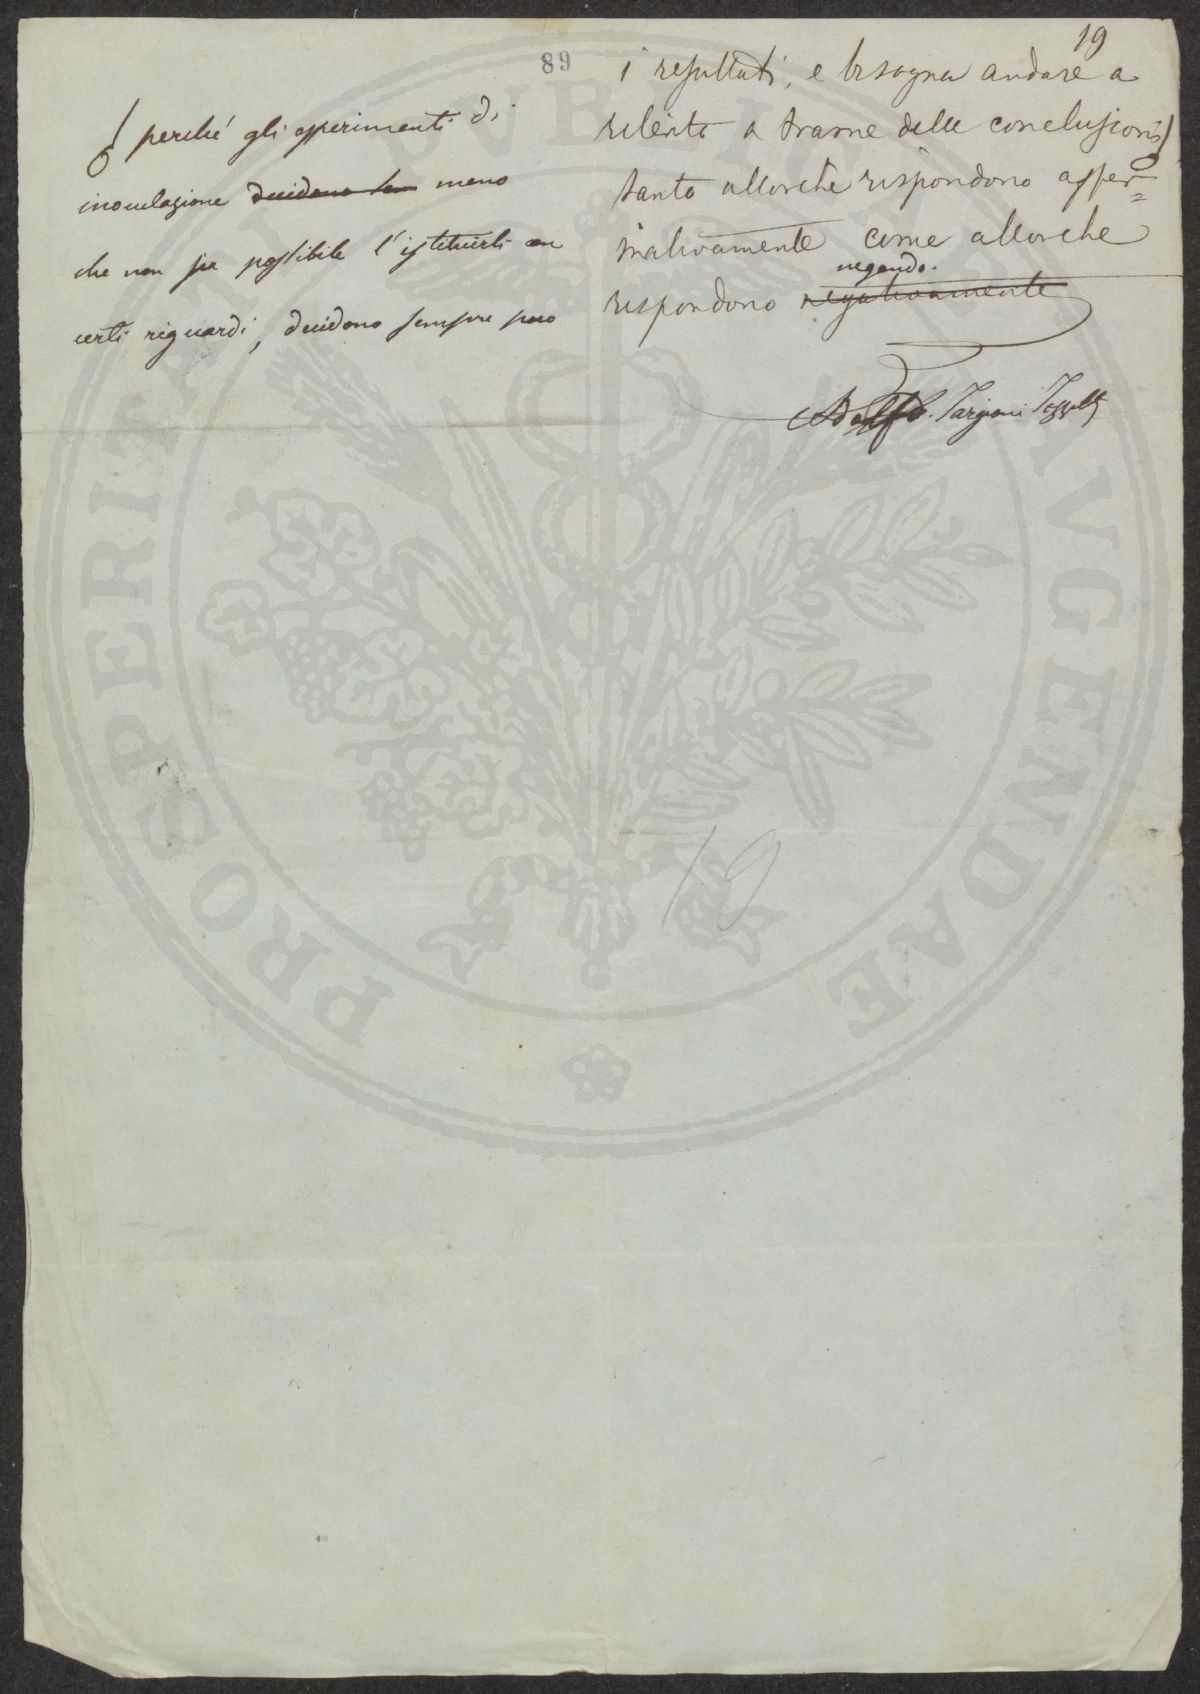 19
89
i resultati, e bisogna andare a
rilento a trarne delle conclusioni
tanto allorchè rispondono affer=
mativamente come allorche
negando.
rispondono negativamente
Adolfo Targioni Tozzetti
perché gli esperimenti di
inoculazione decidono meno
che non sia possibile l'istituirli con
certi riguardi, decidono sempre poco
19
PROSPERITATI PVBLICAE AVGENDAE